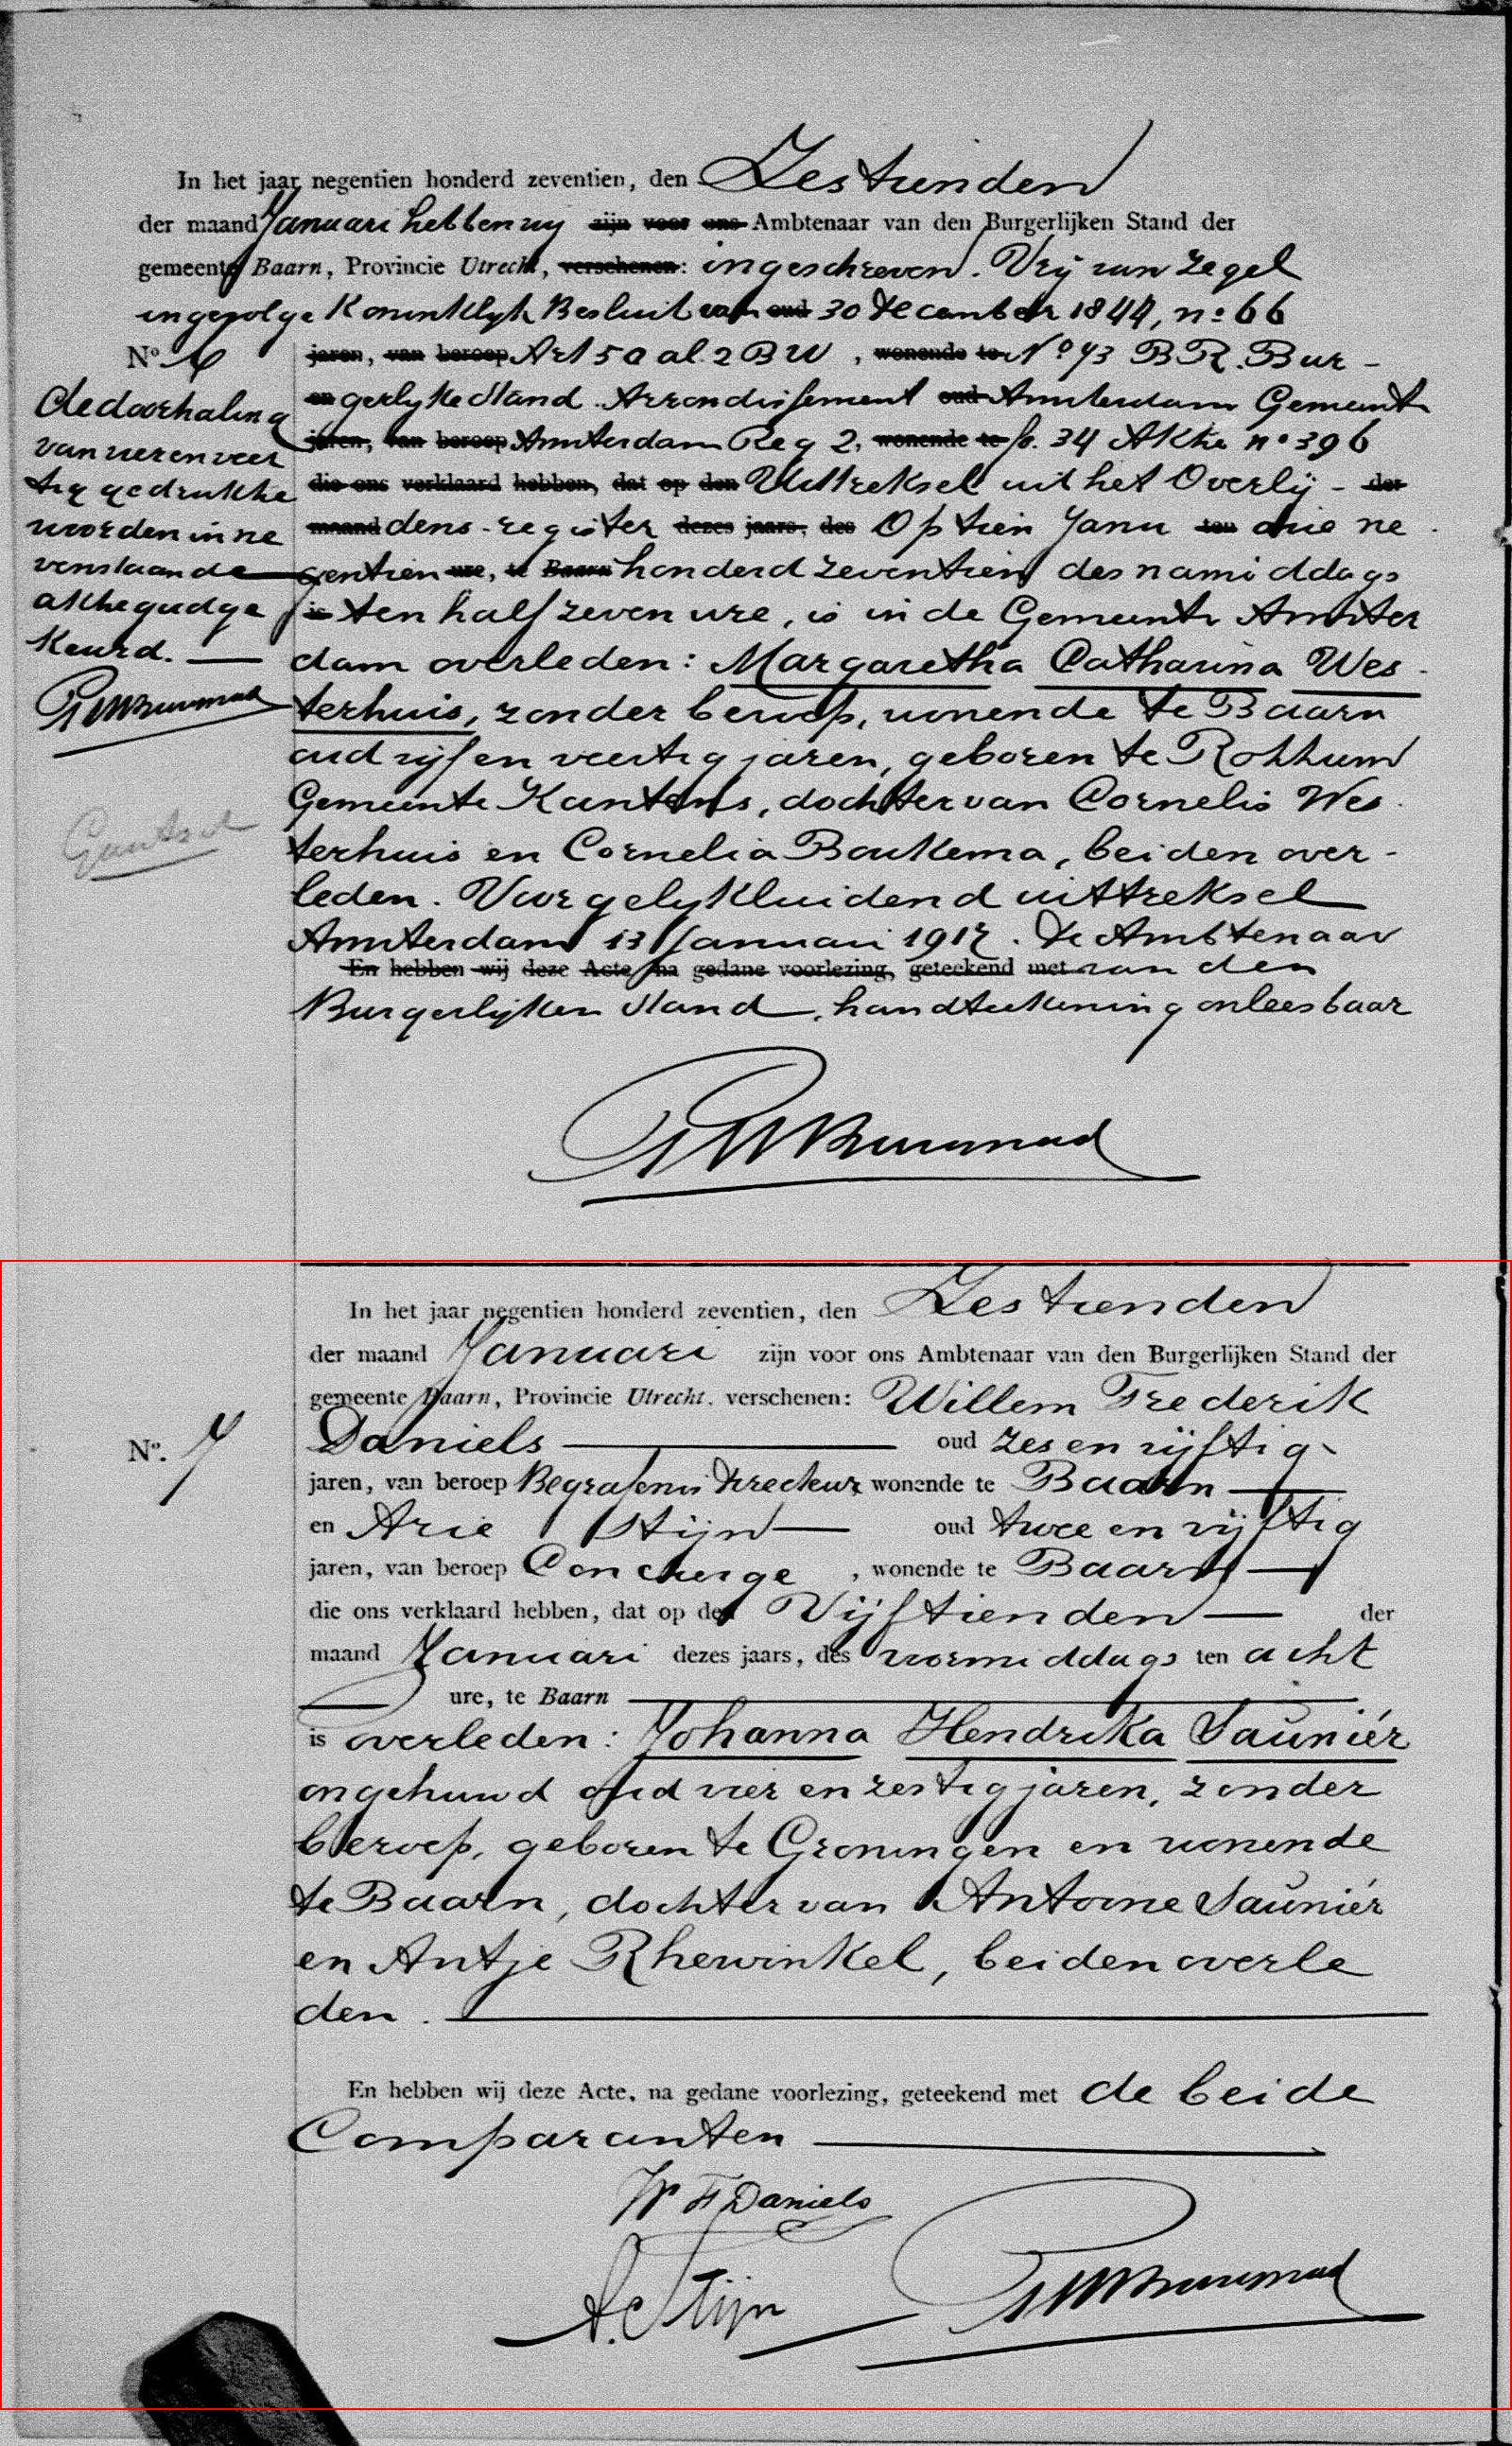 In het jaar negentien honderd zeventien, den Zestienden
der maand Januari hebben wij zijn voor ons Ambtenaar van den Burgerlijken Stand der
gemeente Baarn, Provincie Utrecht, verschenen: ingeschreven. Vrij van zegel
ingevolge Koninklijk Besluit van oud 30 December 1844, no 66
No. 6
jaren, van beroep Art 50 al. 2 BW, wonende te No 43 BR. Bur-
en gerlijke Stand Arrondissement oud Amsterdam Gemeente
jaren, van beroep Amsterdam Reg 2, wonende te fo. 34 Akte no 396
die ons verklaard hebben, dat op den Uittreksel uit het Overlij- der
maand dens-register dezes jaars, des Op tien Janu ten arie ne
gentien ure, te Baarn honderd zeventien des namiddags
is ten half zeven ure, is in de Gemeente Amster
dam overleden: Margaretha Catharina Wes
terhuis, zonder beroep, wonende te Baarn
oud vijf en veertig jaren, geboren te Rottum
Gemeente Kantens, dochter van Cornelis Wes
terhuis en Cornelia Boukema, beiden over-
leden. Voor gelijkluidend uittreksel
Amsterdam 13 Januari 1917. De Ambtenaar
En hebben wij deze Acte, na gedane voorlezing, geteekend met van den
Burgerlijken Stand, handteekening onleesbaar
De doorhaling
van vier en veer
tig gedrukte
woorden in ne
venstaande
akte goedge
keurd.
In het jaar negentien honderd zeventien, den Zestienden
der maand Januari zijn voor ons Ambtenaar van den Burgerlijken Stand der
gemeente Baarn, Provincie Utrecht. verschenen: Willem Frederik
No. 7
Daniels oud zes en vijftig
jaren, van beroep Begrafenis directeur wonende te Baarn
en Arie Stijn oud twee en vijftig
jaren, van beroep Concierge, wonende te Baarn
die ons verklaard hebben, dat op den Vijftienden der
maand Januari dezes jaars, des voormiddags ten acht
ure, te Baarn
is overleden: Johanna Hendrika Sauniér
ongehuwd oud vier en zestig jaren, zonder
beroep, geboren te Groningen en wonende
te Baarn, dochter van Antoine Sauniér
en Antje Rhewinkel, beiden overle
den.
En hebben wij deze Acte, na gedane voorlezing, geteekend met de beide
Comparanten
W F Daniels
A. Stijn